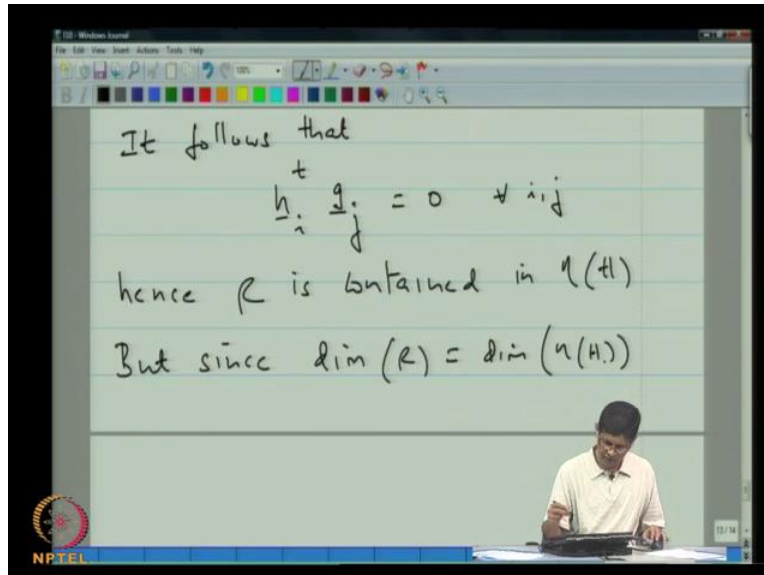 110 - Windows Journal
File Edit View Insert Actions Tools Help
It follows that
h_i^t g_j = 0 ∀ i, j
hence R is contained in η(H)
But since dim (R) = dim (η(H))
13/14
NPTEL